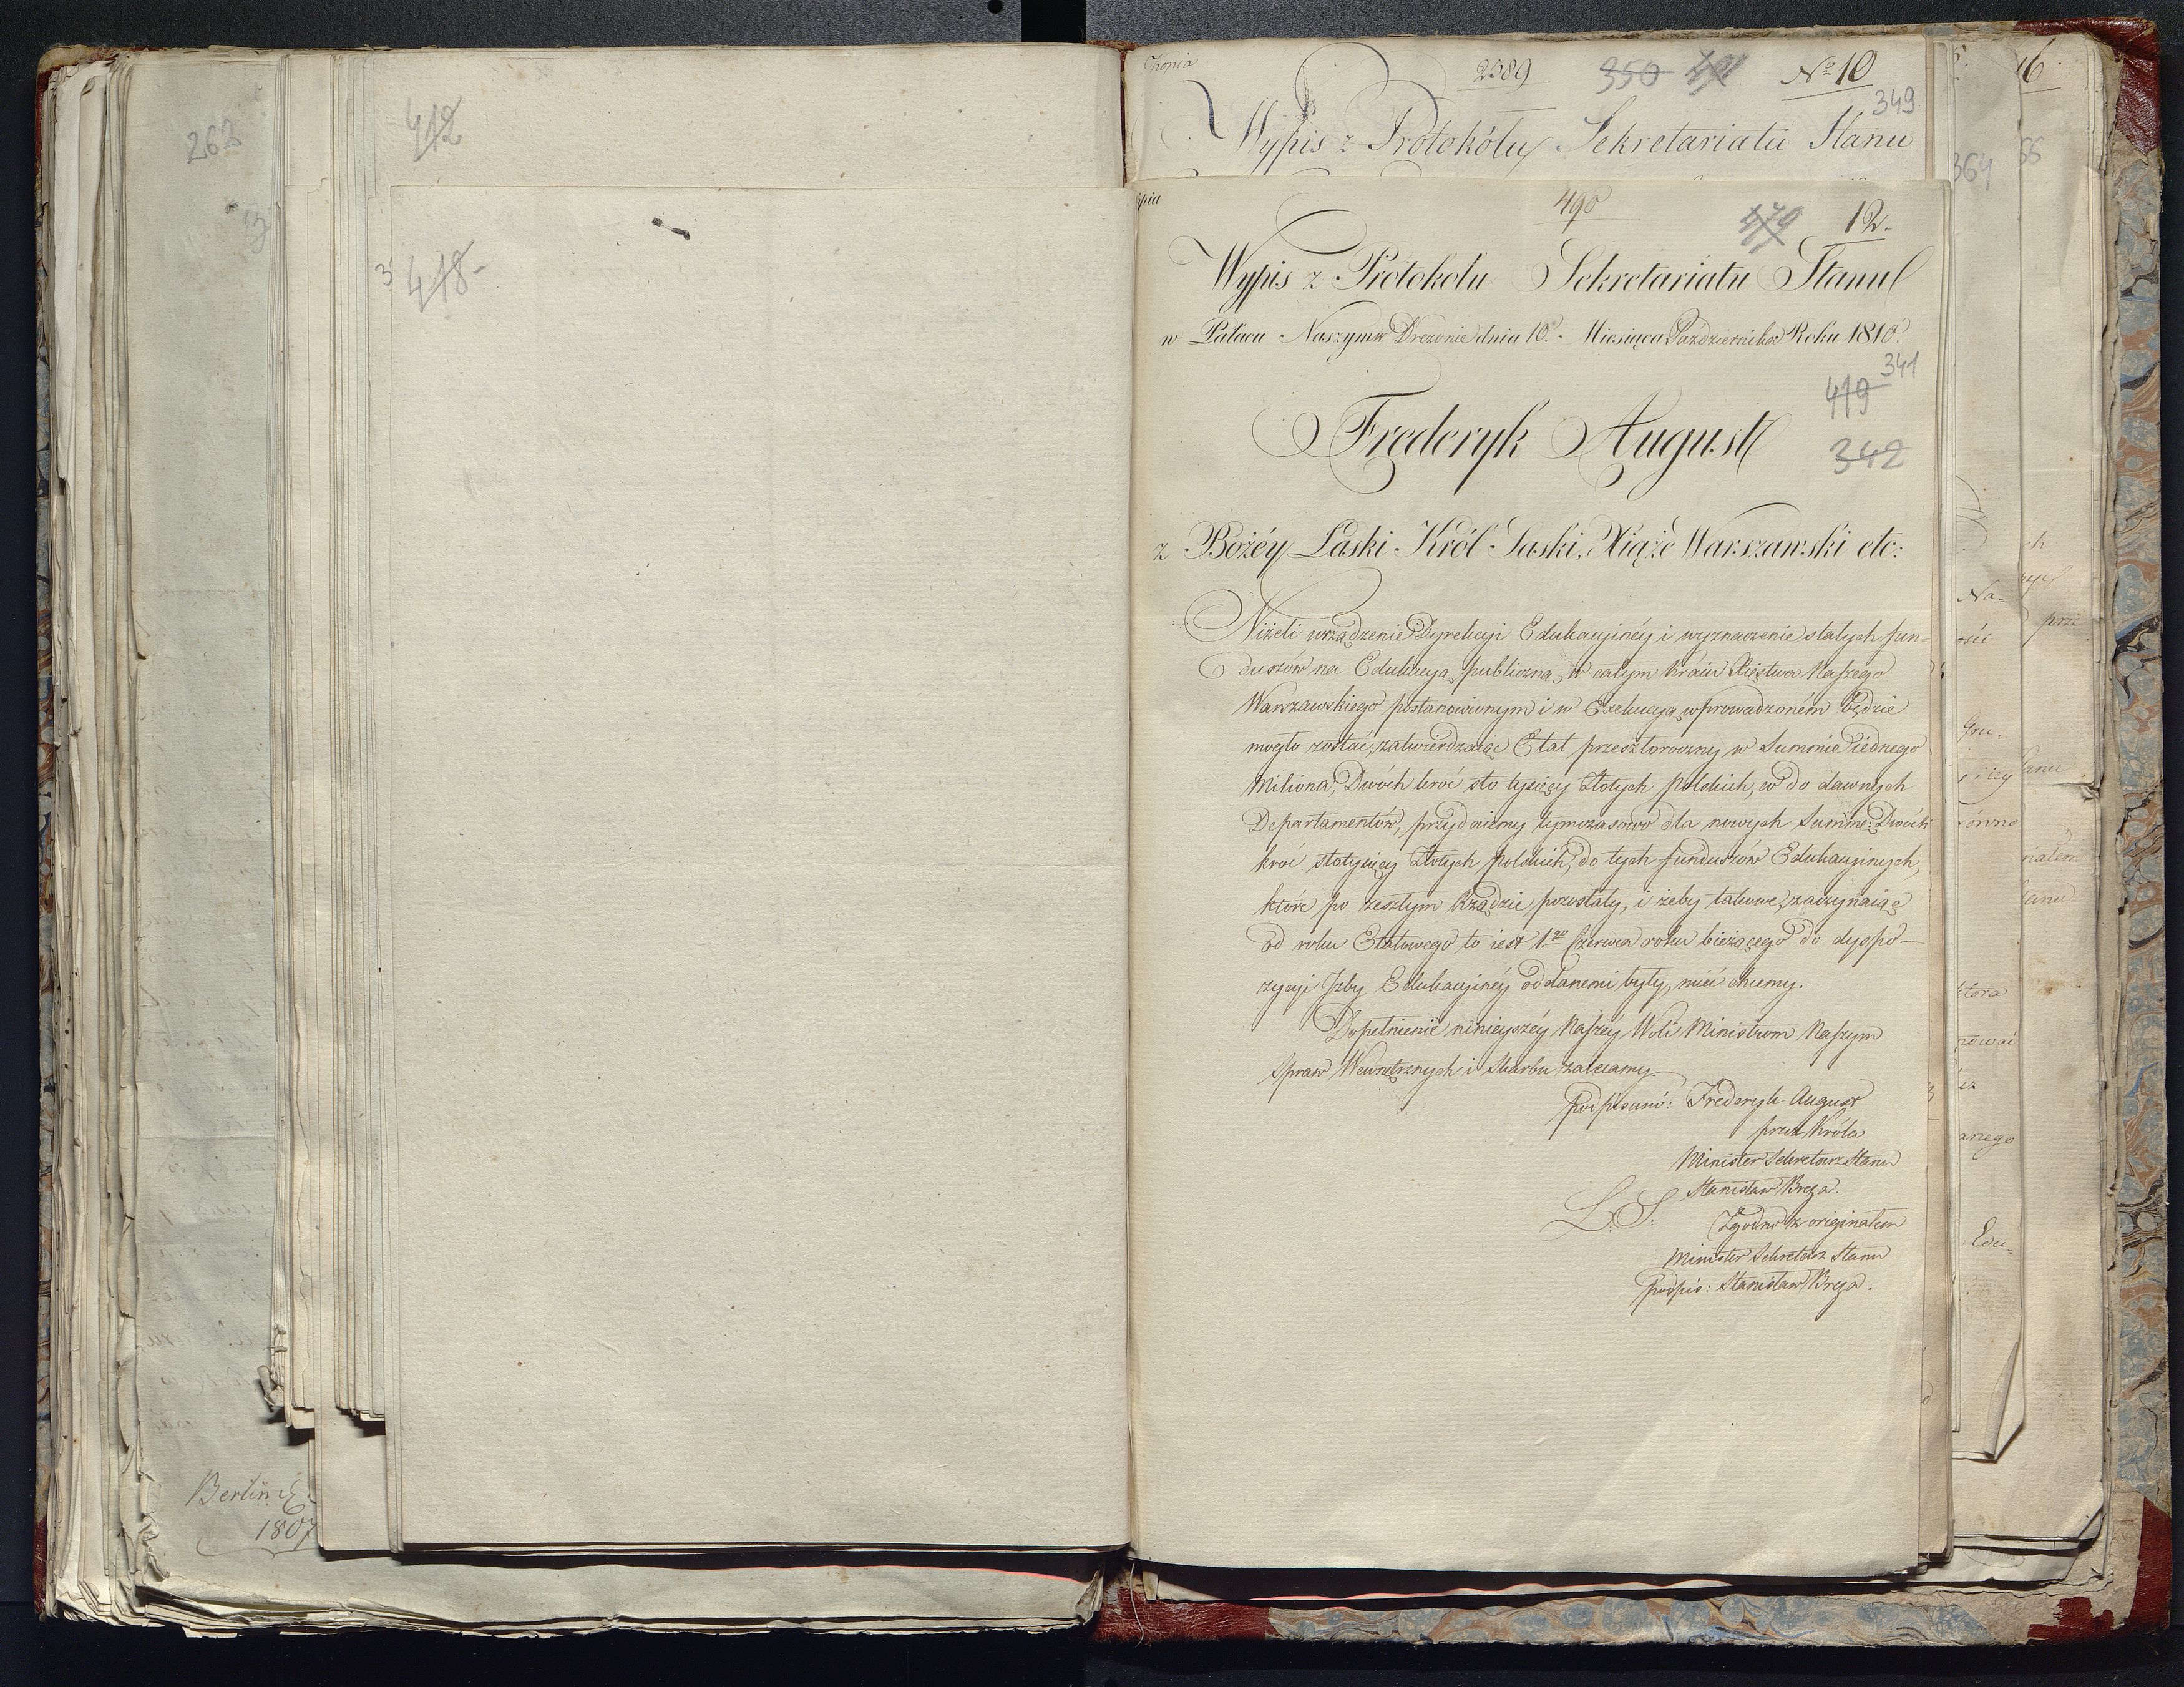 262
412
418
Berlin
1807
Kopia
2589
350
No 10
349
Wypis z Protokółu Sekretariatu Stanu
pia
490
479
12.
Wypis z Protokołu Sekretariatu Stanu
w Pałacu Naszym w Dreznie dnia 10. Miesiąca Października Roku 1810.
341
419
Frederyk August
342
z Bożéy Łaski Król Saski, Xiąże Warszawski etc:
Niżeli urządzenie Dyrekcyi Edukacyinéy i wyznaczenie stałych fun-
duszów na Edukacyą publiczną, w całym kraiu Xięstwa Naszego
Warszawskiego postanowionym i w Exekucyą wprowadzoném będzie
mogło zostać, zatwierdzaiąc Etat przeszłoroczny w Summie Jednego
Miliona, Dwóch kroć sto tysięcy Złotych polskich, co do dawnych
Departamentów, przydaiemy tymczasowo dla nowych Summę: Dwóch
kroć stotysięcy Złotych polskich, do tych funduszów Edukacyinych,
które po zeszłym Rządzie pozostały, i żeby takowe, zaczynaiąc
od roku Etatowego to iest 1go Czerwca roku bieżącego do dyspo-
zycyi Izby Edukacyinéy oddanemi były, mieć chcemy.
Dopełnienie ninieyszéy Naszéy Woli Ministrom Naszym
Spraw Wewnętrznych i Skarbu zalecamy.
podpisano: Frederyk August
przez Króla
Minister Sekretarz Stanu
Stanisław Breza.
L. S.
Zgodno z originałem
Minister Sekretarz Stanu
podpis: Stanisław Breza.
6.
364
66
Na-
prze
Gru-
Stanu
równo
która
nego
Edu-